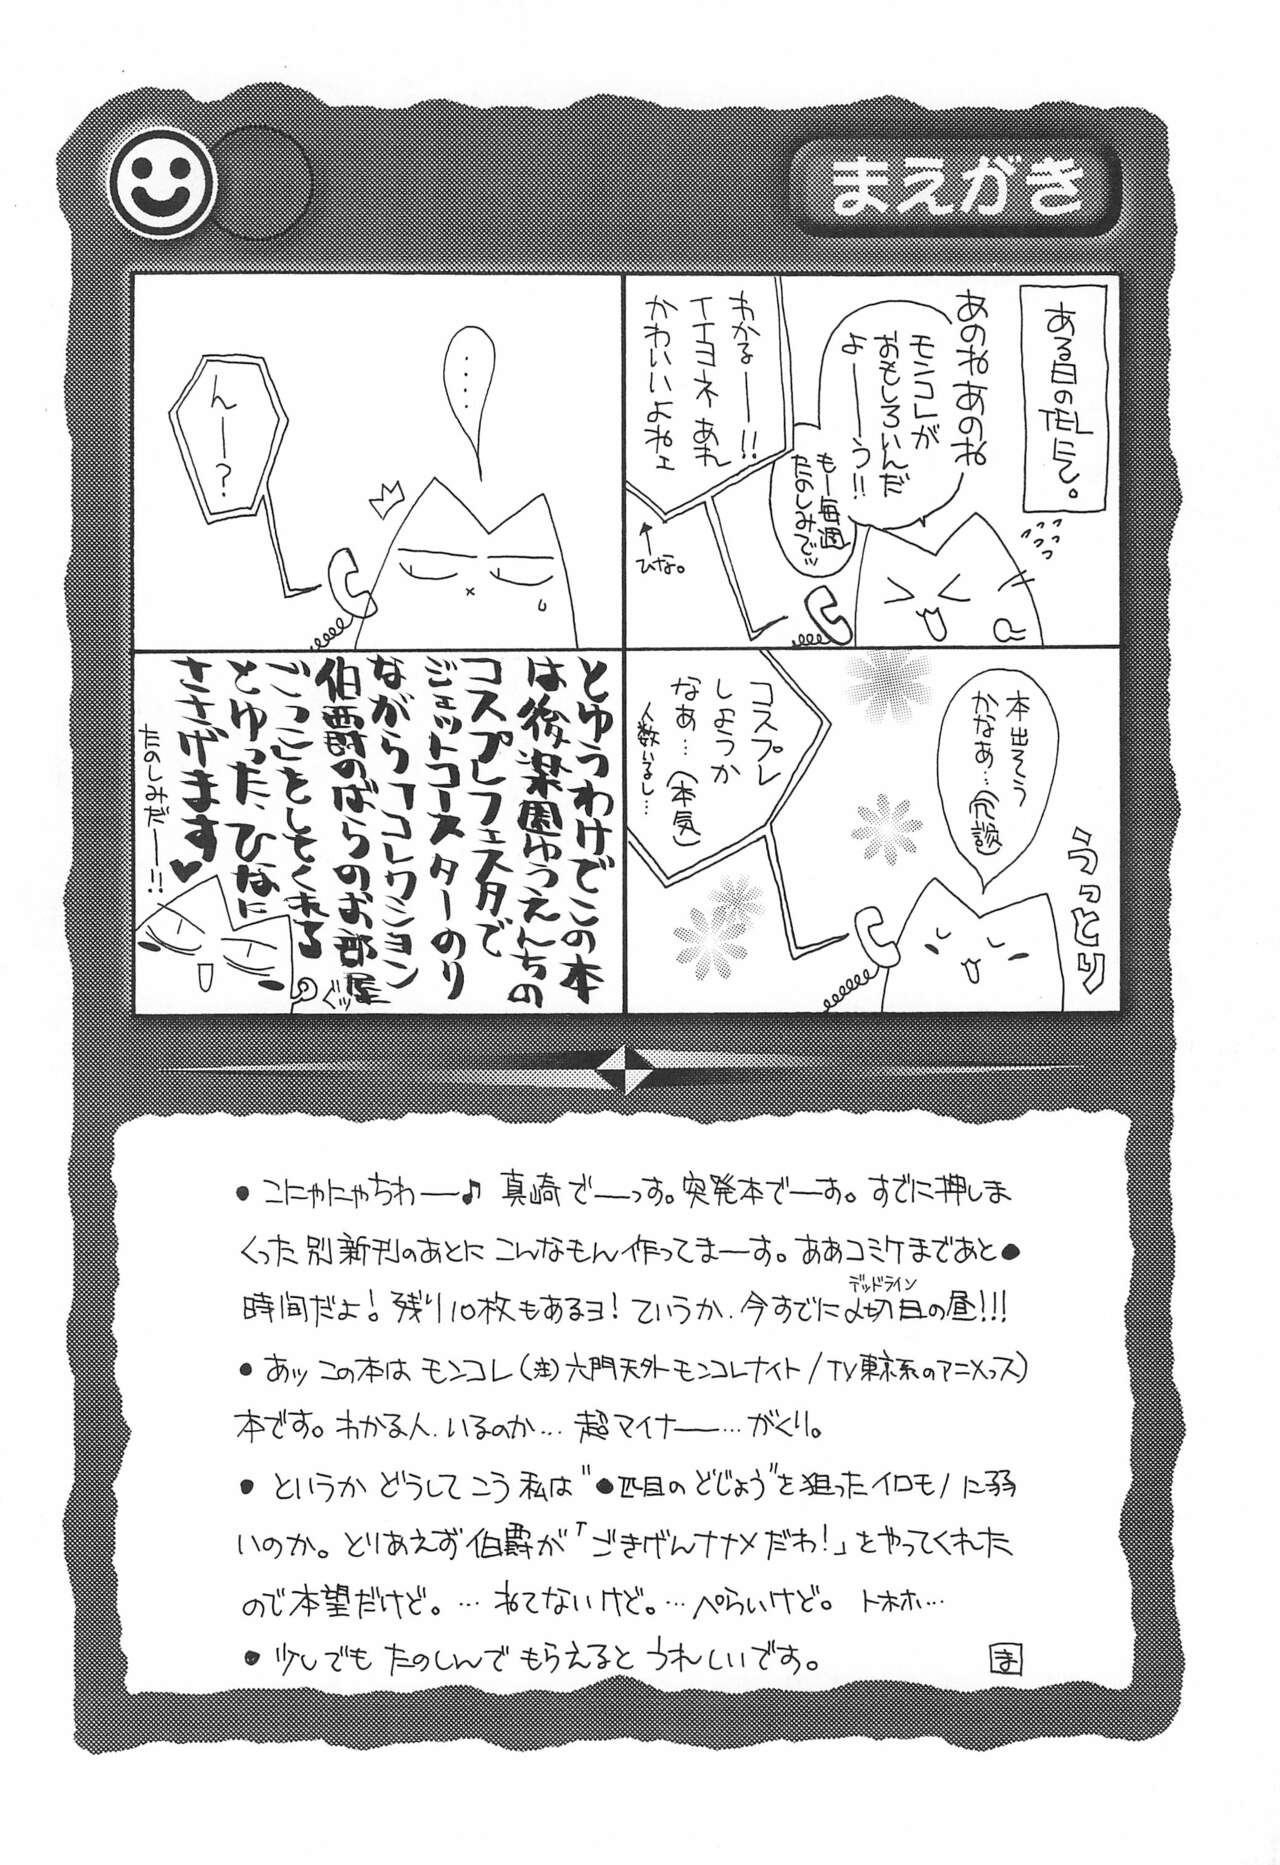 まえがき
ある日のTELにて。
あのねあのね
モンコレが
おもしろいんだ
よーーう!!
もー毎週
たのしみでッ
わかるーー!!
イイヨネあれ
かわいいよねェ
ひな。
本出そう
かなぁ…(冗談)
うっとり
コスプレ
しようか
なぁ…(本気)
人数いるし…
....
んー?
とゆうわけでこの本
は後楽園ゆうえんちの
コスプレフェスタで
ジェットコースターのり
ながら「コレクション
伯爵のばらのお部屋
ごっこ」としてくれる
とゆった、ひなに
ささげます♥
たのしみだー!!
ぐッ
●こにゃにゃちわー♪ 真崎でーっす。突発本でーす。すでに押しま
くった別新刊のあとにこんなもん作ってまーす。ああコミケまであと●
時間だよ!残り10枚もあるヨ!ていうか、今すでに〆切日の昼!!!
デッドライン
●あッ この本は モンコレ(注)六門天外モンコレナイト/TV東京系のアニメっス)
本です。わかる人、いるのか…超マイナー…がくり。
●というか どうしてこう私は"●匹目のどじょう"を狙ったイロモノに弱
いのか。とりあえず伯爵が「ごきげんナナメだわ!」とやってくれた
ので本望だけど。…ねてないけど。…ぺらいけど。 トホホ…
●少しでも たのしんで もらえると うれしいです。
ま